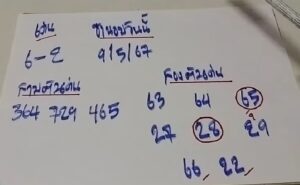 เด่น
6-2
ชนงวดวันนี้
9/5/67
สามตัวเด่น
364 729 465
สองตัวเด่น
63 64 65
27 28 29
66 22